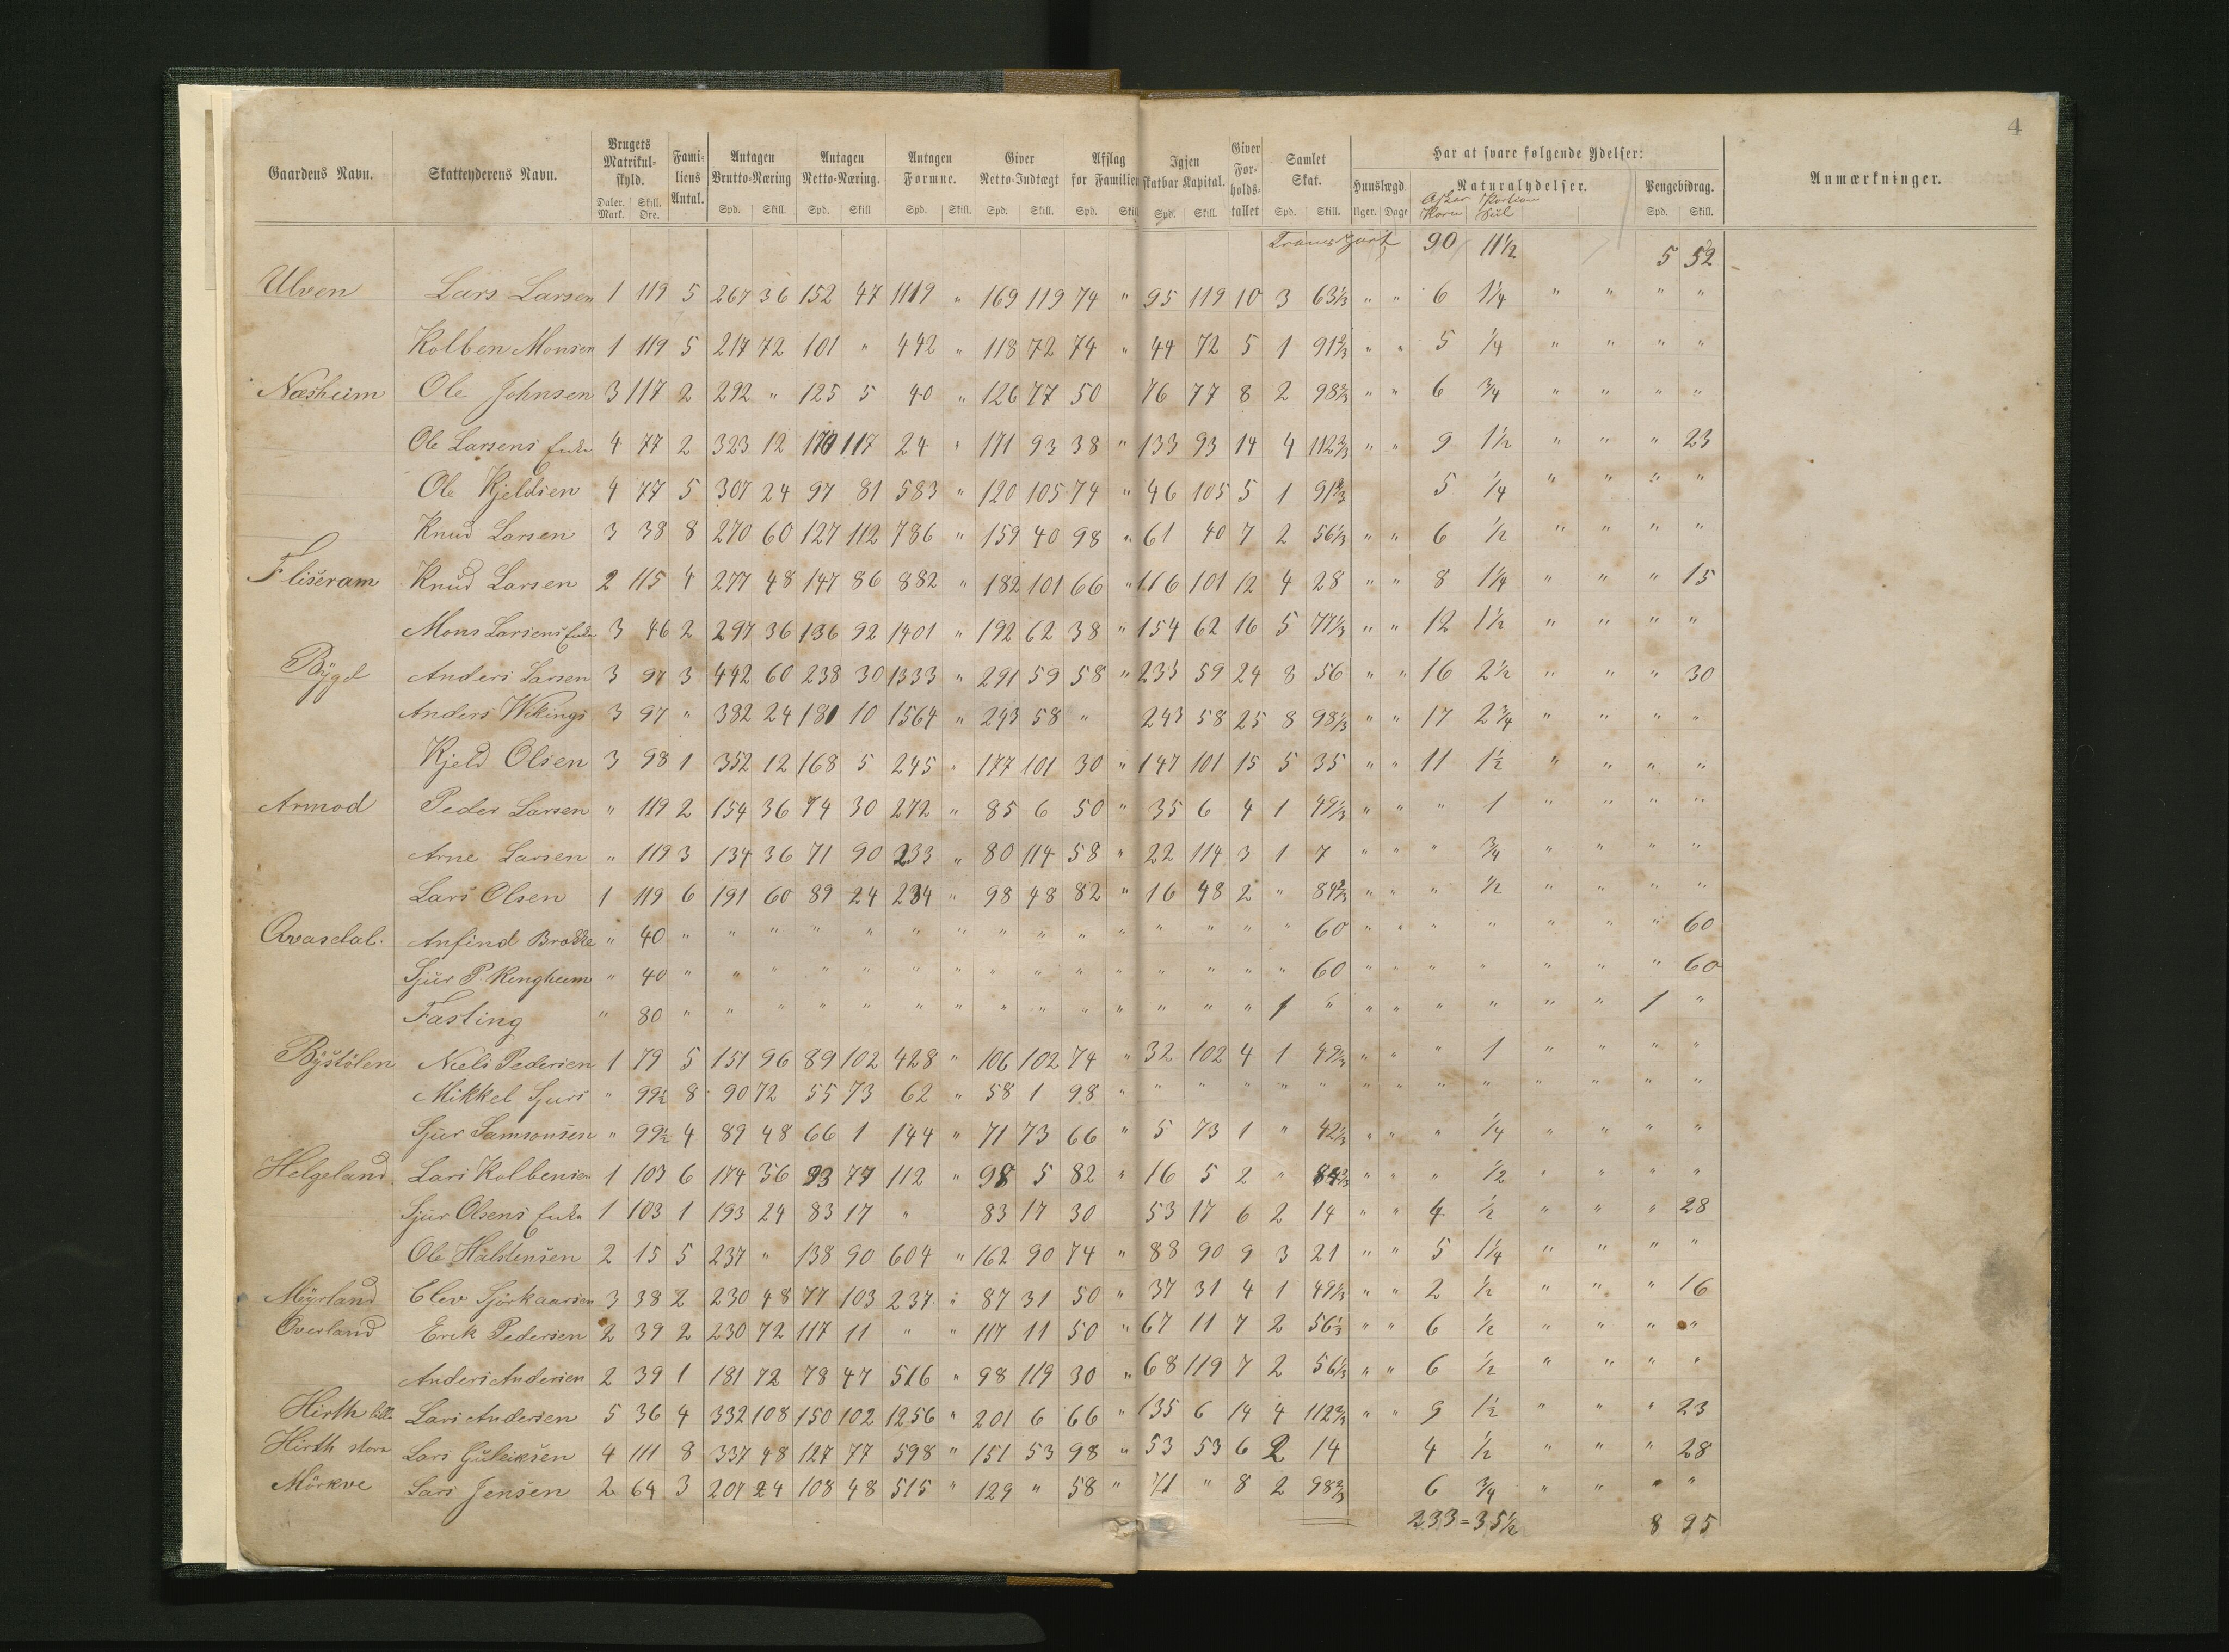 4
Gaardens Navn. Skatteyderens Navn. Brugets Matrikul-skyld. Fami-liens Antal. Antagen Brutto-Næring Antagen Netto-Næring. Antagen Formue. Giver Netto-Indtægt Afslag for Familien Igjen skatbar Kapital. Giver For-holds-tallet Samlet Skat. Har at svare følgende Ydelser: Anmærkninger.
Huuslægd. Naturalydelser. Pengebidrag.
Daler. Mark. Skill. Øre. Spd. Skill. Spd. Skill Spd. Skill. Spd. Skill. Spd. Skill Spd. Skill. Spd. Skill. Uger. Dage Korn Sul Spd. Skill.
Transport 90 11½ 5 52
Ulven Lars Larsen 1 119 5 267 36 152 47 1119 " 169 119 74 " 95 119 10 3 63⅓ " " 6 1¼ " " " "
Kolben Monsen 1 119 5 217 72 101 " 442 " 118 72 74 " 44 72 5 1 91⅔ " " 5 ¼ " " " "
Næsheim Ole Johnsen 3 117 2 292 " 125 5 40 " 126 77 50 76 77 8 2 98⅔ " " 6 ¾ " " " "
Ole Larsens Enke 4 77 2 323 12 170 117 24 " 171 93 38 " 133 93 14 4 112⅔ " " 9 1½ " " " 23
Ole Kjeldsen 4 77 5 307 24 97 81 583 " 120 105 74 " 46 105 5 1 91⅔ 5 ¼ " " " "
Knud Larsen 3 38 8 270 60 127 112 786 " 159 40 98 " 61 40 7 2 56⅓ " " 6 ½ " " " "
Fliseram Knud Larsen 2 115 4 277 48 147 86 882 " 182 101 66 " 116 101 12 4 28 " " 8 1¼ " " " 15
Mons Larsens Enke 3 46 2 297 36 136 92 1401 " 192 62 38 " 154 62 16 5 77⅓ " " 12 1½ " " " "
Bygd Anders Larsen 3 97 3 442 60 238 30 1333 " 291 59 58 " 233 59 24 8 56 " " 16 2½ " " " 30
Anders Wikings 3 97 " 382 24 181 10 1564 " 243 58 " 243 58 25 8 98⅓ " " 17 2¾ " " " "
Kjeld Olsen 3 98 1 352 12 168 5 245 " 177 101 30 " 147 101 15 5 35 " " 11 1½ " " " "
Armod Peder Larsen " 119 2 154 36 74 30 272 " 85 6 50 " 35 6 4 1 49⅓ " " " 1 " " " "
Arne Larsen " 119 3 134 36 71 90 233 " 80 114 58 " 22 114 3 1 7 " " " ¾ " " " "
Lars Olsen 1 119 6 191 60 89 24 234 " 98 48 82 " 16 48 2 " 84⅔ " " " ½ " " " "
Qvasdal. Anfind Brække " 40 " " " " " " " " " " " " " " " 60 " " " " " " " 60
Sjur P. Rengheim " 40 " " " " " " " " " " " " " " " 60 " " " " " " " 60
Fasting " 80 " " " " " " " " " " " " " " 1 " " " " " " " 1 "
Bystölen Niels Pedersen 1 79 5 151 96 89 102 428 " 106 102 74 " 32 102 4 1 49⅓ " " " 1 " " " "
Mikkel Sjurs " 99½ 8 90 72 55 73 62 " 58 1 98 " " " " " " " " " " " " " "
Sjur Samsonsen " 99½ 4 89 48 66 1 144 " 71 73 66 " 5 73 1 " 42⅓ " " " ¼ " " " "
Helgeland Lars Kolbensen 1 103 6 174 36 93 77 112 " 98 5 82 " 16 5 2 " 84⅔ " " " ½ " " " "
Sjur Olsens Enke 1 103 1 193 24 83 17 " 83 17 30 53 17 6 2 14 " " 4 ½ " " " 28
Ole Halstensen 2 15 5 237 " 138 90 604 " 162 90 74 " 88 90 9 3 21 " " 5 1¼ " " " "
Myrland Elev Sjörkaarsen 3 38 2 230 48 77 103 237 " 87 31 50 " 37 31 4 1 49⅓ " " 2 ½ " " " 16
Overland Erik Pedersen 2 39 2 230 72 117 11 " " 117 11 50 " 67 11 7 2 56⅓ " " 6 ½ " " " "
Anders Andersen 2 39 1 181 72 78 47 516 " 98 119 30 " 68 119 7 2 56⅓ " " 6 ½ " " " "
Hirth lille Lars Andersen 5 36 4 332 108 150 102 1256 " 201 6 66 " 135 6 14 4 112⅔ " " 9 1½ " " " 23
Hirth store Lars Guleiksen 4 111 8 337 48 127 77 598 " 151 53 98 " 53 53 6 2 14 4 ½ " " " 28
Mörkve Lars Jensen 2 64 3 207 24 108 48 515 " 129 " 58 " 71 " 8 2 98⅔ 6 ¾ " " " "
233 = 35½ 8 95